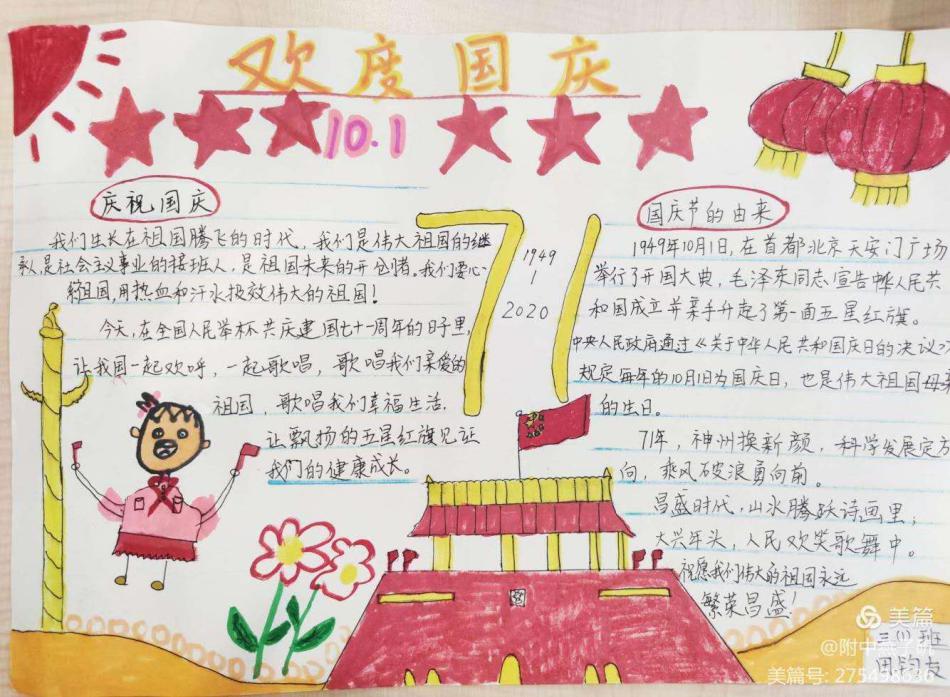 欢度国庆
10.1
庆祝国庆
我们生长在祖国腾飞的时代，我们是伟大祖国的继
承人，是社会主义事业的接班人，是祖国未来的开创者。我们要心
祖国，用热血和汗水报效伟大的祖国！
今天，在全国人民举杯共庆建国七十一周年的日子里，
让我国一起欢呼，一起歌唱，歌唱我们亲爱的
祖国，歌唱我们幸福生活，
让飘扬的五星红旗见证
我们的健康成长。
71
1949
1
2020
国庆节的由来
1949年10月1日，在首都北京天安门广场
举行了开国大典，毛泽东同志宣告中华人民共
和国成立并亲手升起了第一面五星红旗。
中央人民政府通过《关于中华人民共和国国庆日的决议》
规定每年的10月1日为国庆日，也是伟大祖国母亲
的生日。
71年，神州换新颜，科学发展定方
向，乘风破浪勇向前。
昌盛时代，山水腾跃诗画里；
大兴年头，人民欢笑歌舞中。
祝愿我们伟大的祖国永远
繁荣昌盛！
三(1)班
美篇
@附中燕子矶
美篇号: 275498636